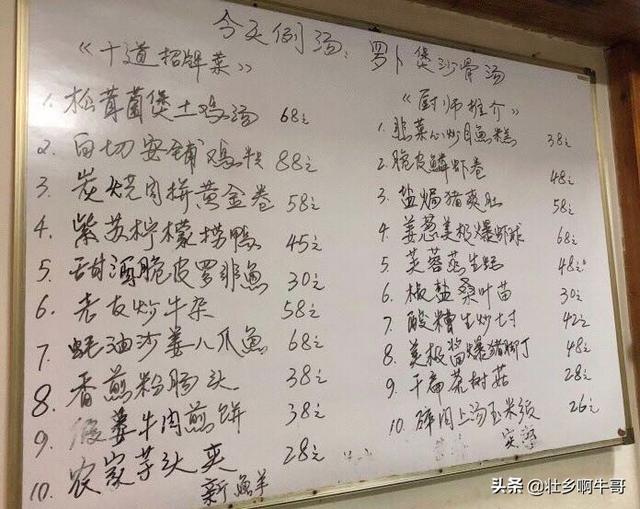 今天例汤: 萝卜煲沙骨汤
《十道招牌菜》
1. 松茸菌煲土鸡汤 68元
2. 白切安铺鸡 88元
3. 炭烧肉拼黄金卷 58元
4. 紫苏柠檬捞鸭 45元
5. 甜酒脆皮罗非鱼 30元
6. 老友炒牛杂 58元
7. 蚝油沙姜八爪鱼 68元
8. 香煎粉肠头 38元
9. 牛肉煎饼 38元
10. 农家芋头夹 28元
《厨师推介》
1. 韭菜心炒目鱼糕 38元
2. 脆皮鳞虾卷 48元
3. 盐焗猪爽肚 58元
4. 姜葱美极爆虾球 68元
5. 芙蓉蒸生蚝 48元
6. 椒盐桑叶苗 30元
7. 酸糟生炒 42元
8. 美极酱爆猪脚丁 48元
9. 干扁茶树菇 28元
10. 碎肉上汤玉米 26元
头条 @壮乡啊牛哥